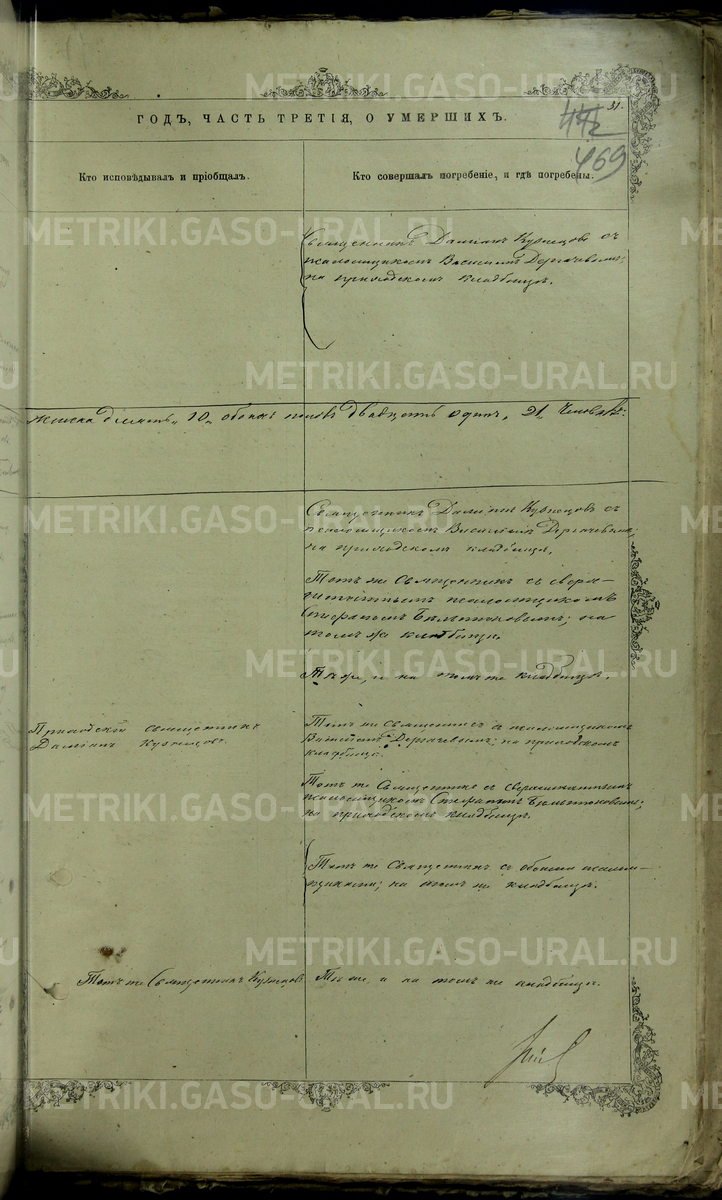 METRIKI.GASO-URAL.RU
31.
442
469
ГОДЪ, ЧАСТЬ ТРЕТІЯ, О УМЕРШИХЪ.
Кто исповѣдывалъ и пріобщалъ.
Кто совершалъ погребеніе, и гдѣ погребены.
Священникъ Даміанъ Кузнецовъ съ
псаломщикомъ Василіемъ Дергачевымъ;
на приходскомъ кладбищѣ.
Женска десять „10„ обоихъ половъ двадцать одинъ, 21 человѣкъ:
Священникъ Даміанъ Кузнецовъ съ
псаломщикомъ Василіемъ Дергачевымъ;
на приходскомъ кладбищѣ.
Тотъ же Священникъ съ сверх-
штатнымъ псаломщикомъ
на
томъ же кладбищѣ.
Тѣ же, и на томъ же кладбищѣ.
Приходскій священникъ
Даміанъ Кузнецовъ.
Тотъ же Священникъ съ псаломщикомъ
Василіемъ Дергачевымъ; на приходскомъ
кладбищѣ.
Тотъ же Священникъ съ сверхштатнымъ
псаломщикомъ
на приходскомъ кладбищѣ.
Тотъ же Священникъ съ обоими псалом-
щиками; на томъ же кладбищѣ.
Тотъ же Священникъ Кузнецовъ
Тѣ же, и на томъ же кладбищѣ.